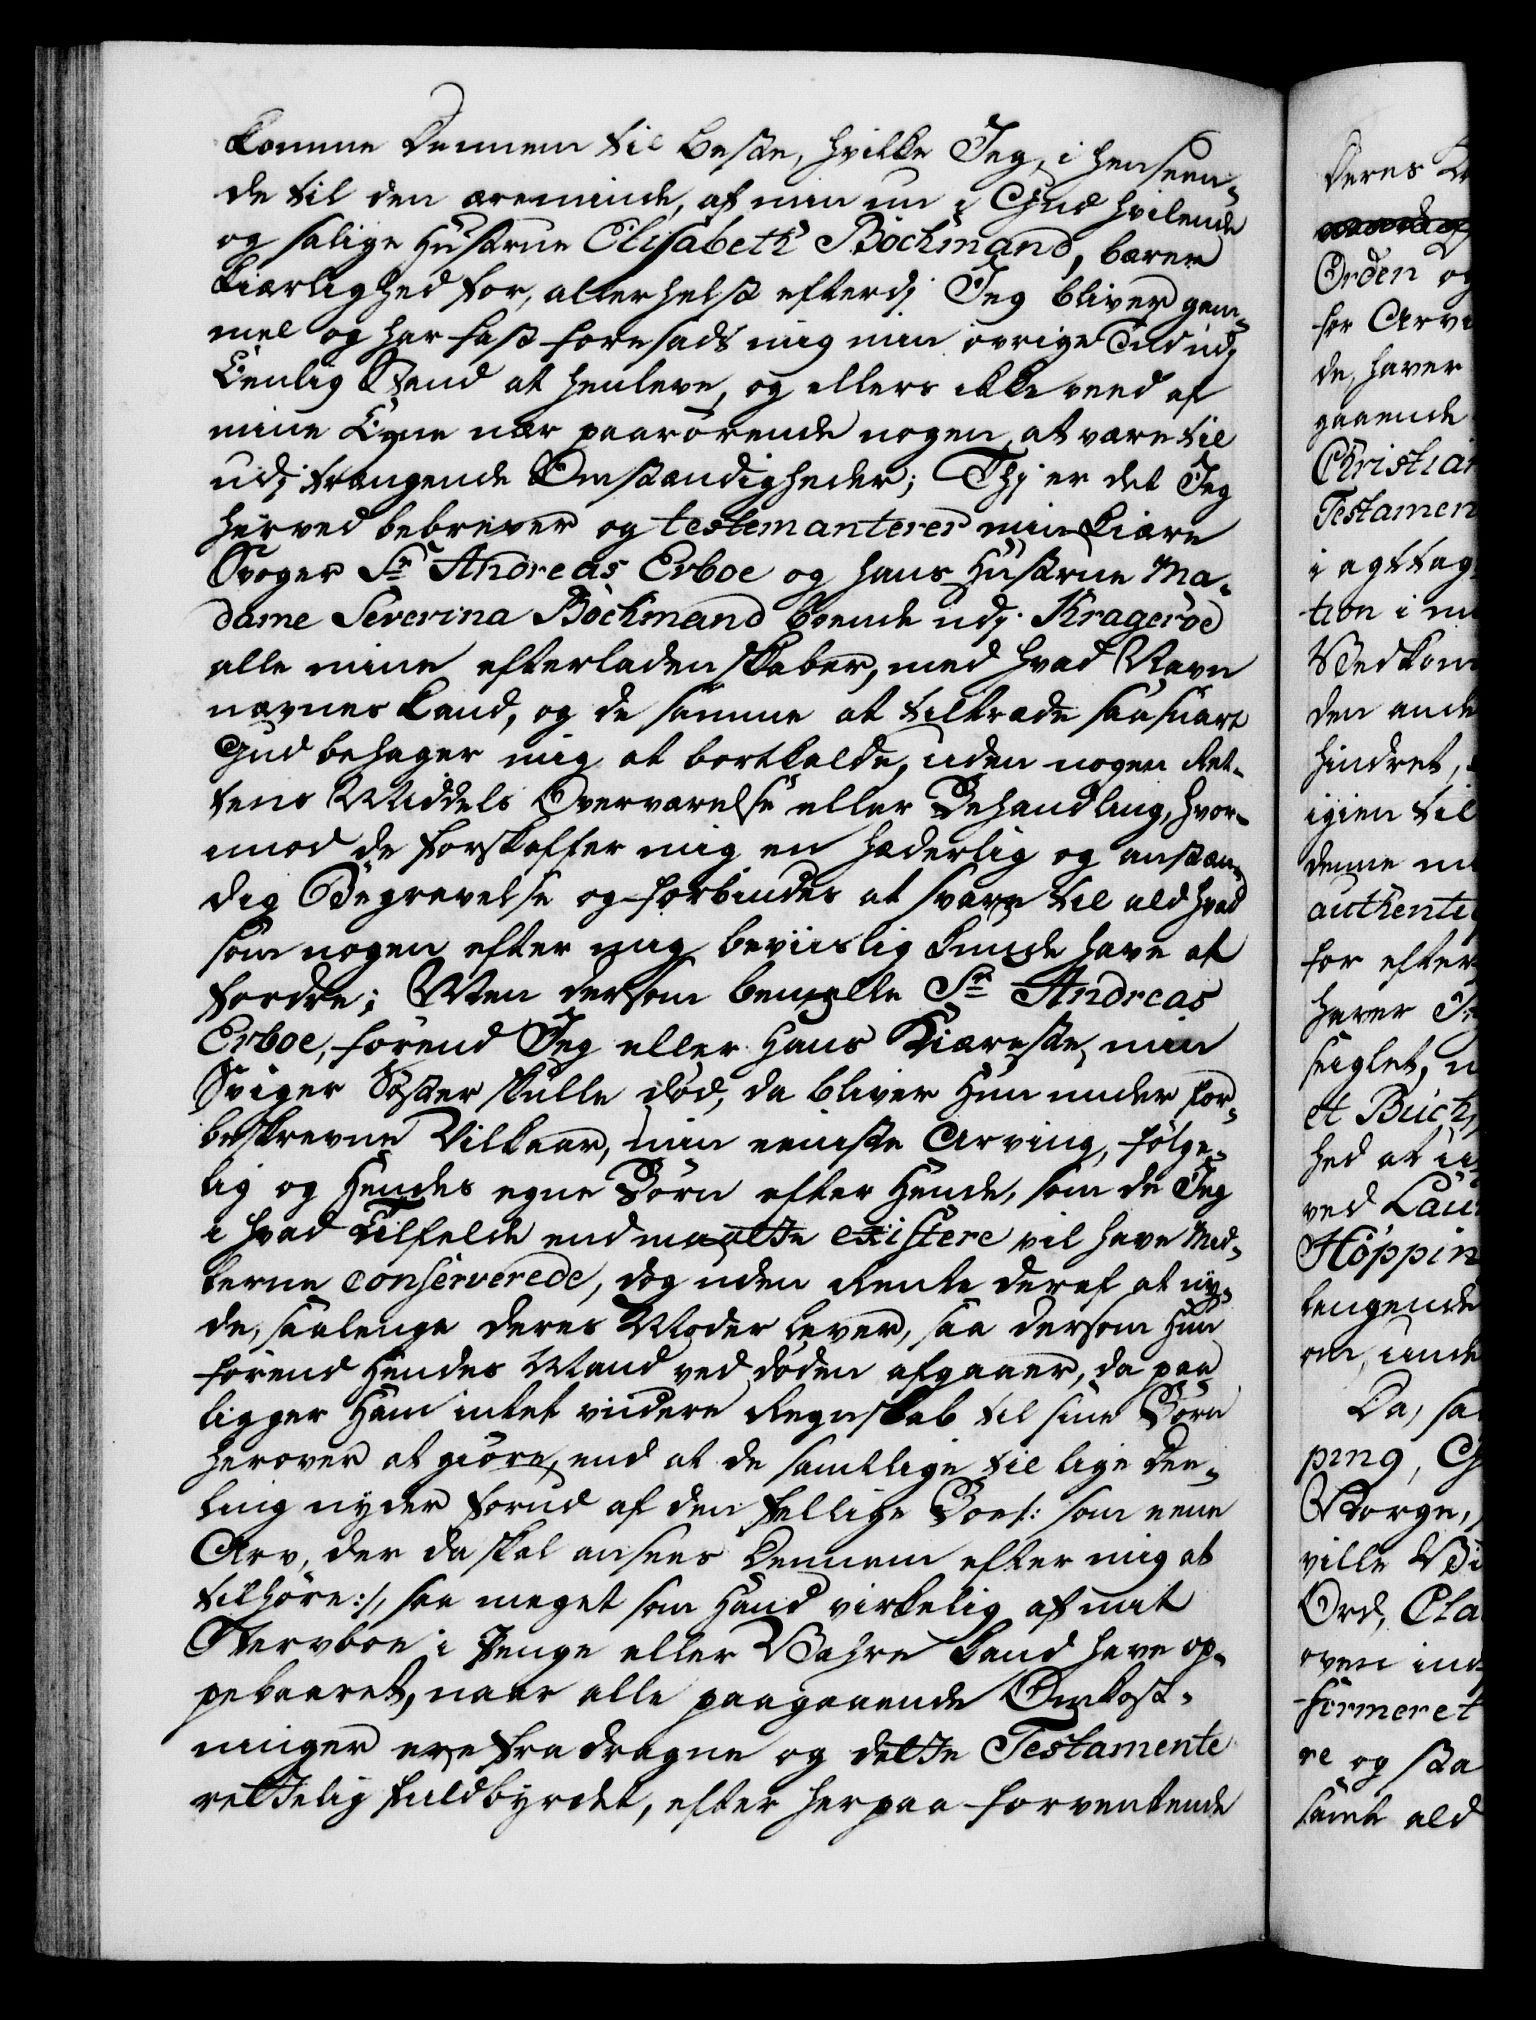 komme dennem til beste, hvilke Jeg, i henseen-
de til den æreminde, af min nu i Gud hvilende
og salige Hustrue Elisabeth Böchmand, bærer
Kiærlighed for, allerhelst efterdj Jeg bliver gam-
mel og har fast foresadt mig min övrige Tiid udj
Eenlig Stand at henleve, og ellers ikke veed af
mine Egne nær paarörende nogen, at være til
udj trængende Omstændigheder; Thj er det Jeg
herved bebrever og testemanterer min kiære
Svoger Sr Andreas Erboe og hans Hustrue Ma-
dame Severina Böchmand boende udj Krageröe
alle mine efterladenskaber, med hvad Navn
nævnes kand, og de samme at tiltræde saasnart
Gud behager mig at bortkalde, uden nogen Ret-
tens Middels Overværelse eller Behandling, hvor-
imod de forskaffer mig en hæderlig og anstæn-
dig Begravelse og forbindes at svare til ald hvad
som nogen efter mig beviislig kunde have at
fordre; Men dersom bemelte Sr Andreas
Erboe, förend Jeg eller Hans Kiæreste, min
Sviger Söster skulle död, da bliver Hun under for-
beskrevne Vilkaar, min eeniste Arving, fölge-
lig og Hendes egne Börn efter Hende, som de Jeg
i hvad Tilfelde end maatte existere vil have Mid-
lerne conserverede, dog uden Rente deraf at ny-
de, saalenge deres Moder lever, saa dersom Hun
förend Hendes Mand ved döden afgaaer, da paa
ligger Ham intet viidere Regnskab til sine Börn
herover at giöre, end at de samtlige til lige dee-
ling nyder forud af den fellige Boe /: som eene
Arv, der da skal ansees dennem efter mig at
tilhöre :/, saa meget som Hand virkelig af mit
Stervboe i Penge eller Vahre kand have op-
pebaaret, naar alle paagaaende Omkost-
ninger ere fradragne og dette Testamente
rettelig fuldbyrdet, efter herpaa forventende
Deres
Orden og
for Arv
de, haver
gaaende
Christian
Testamen
i agttag
tion i
Vedkom
den ande
hindret,
igien til
denne
authenti
for efter
haver
seiglet,
et Buch
hed at
ved Lau
Höppin
længende
om, unde
Da, sa
ping,
Borge,
ville
Ord, Cla
oven ind
firmeret
re og sta
samt ald